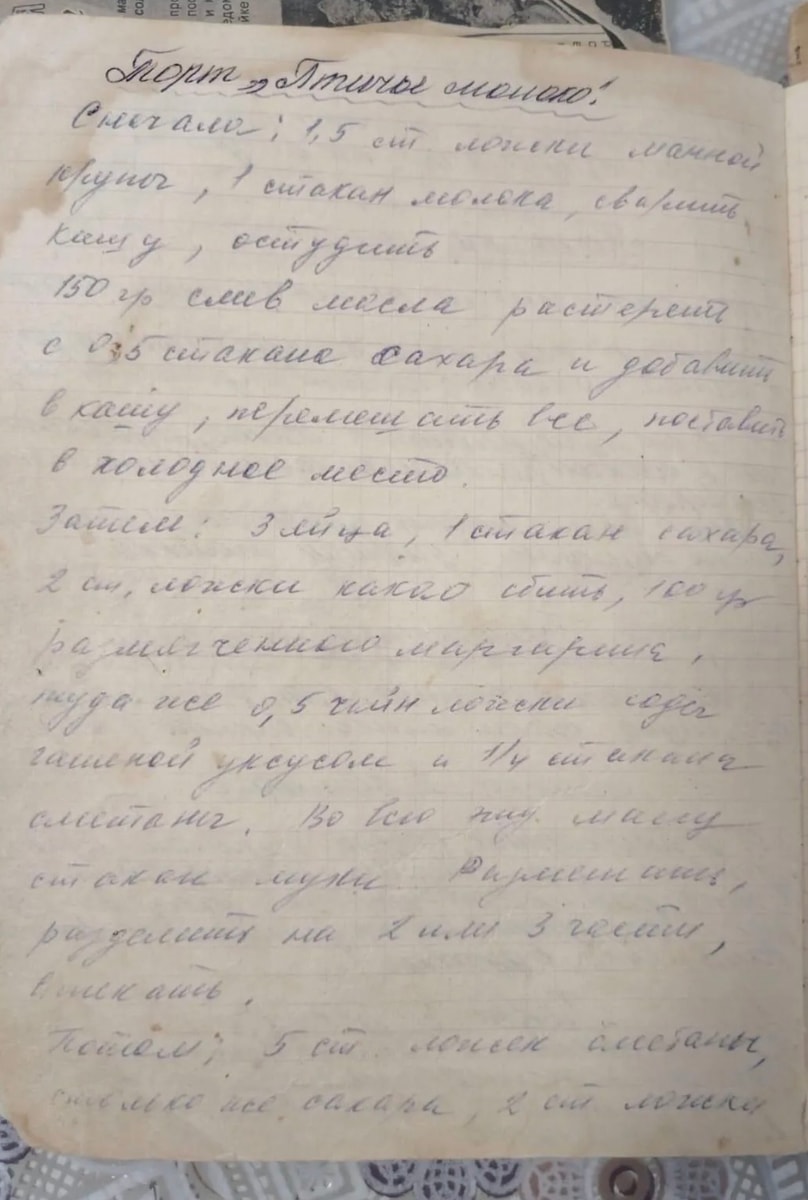 Торт „Птичье молоко".
Сначала: 1,5 ст. ложки манной
крупы, 1 стакан молока, сварить
кашу, остудить
150 гр слив масла растереть
с 0,5 стакана сахара и добавить
в кашу, перемешать все, поставить
в холодное место.
Затем: 3 яйца, 1 стакан сахара,
2 ст. ложки какао сбить, 100 гр
размягченного маргарина,
туда же 0,5 чайн ложки соды
гашеной уксусом и 1/4 стакана
сметаны. Во всю эту массу
стакан муки. Размешать,
разделить на 2 или 3 части,
выпекать.
Потом: 5 ст. ложек сметаны,
столько же сахара, 2 ст ложки